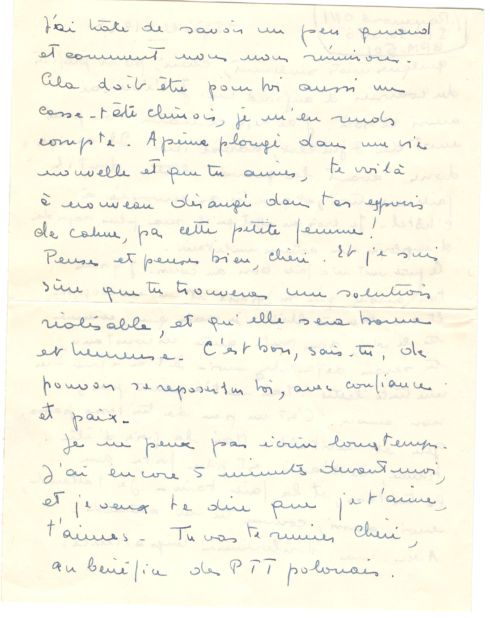 J'ai hâte de savoir un peu quand
et comment nous nous réunirons.
Cela doit être pour toi aussi un
casse-tête chinois, je m'en rends
compte. A peine plongé dans une vie
nouvelle et que tu aimes, te voilà
à nouveau dérangé dans tes espoirs
de calme, par cette petite femme !
Penses et penses bien, chéri. Et je suis
sûre que tu trouveras une solution
réalisable, et qu'elle sera bonne
et heureuse. C'est bon, sais-tu, de
pouvoir se reposer sur toi, avec confiance
et paix.
Je ne peux pas écrire longtemps.
J'ai encore 5 minutes devant moi,
et je veux te dire que je t'aime,
t'aimes. Tu vas te ruiner chéri,
au bénéfice des PTT polonais.